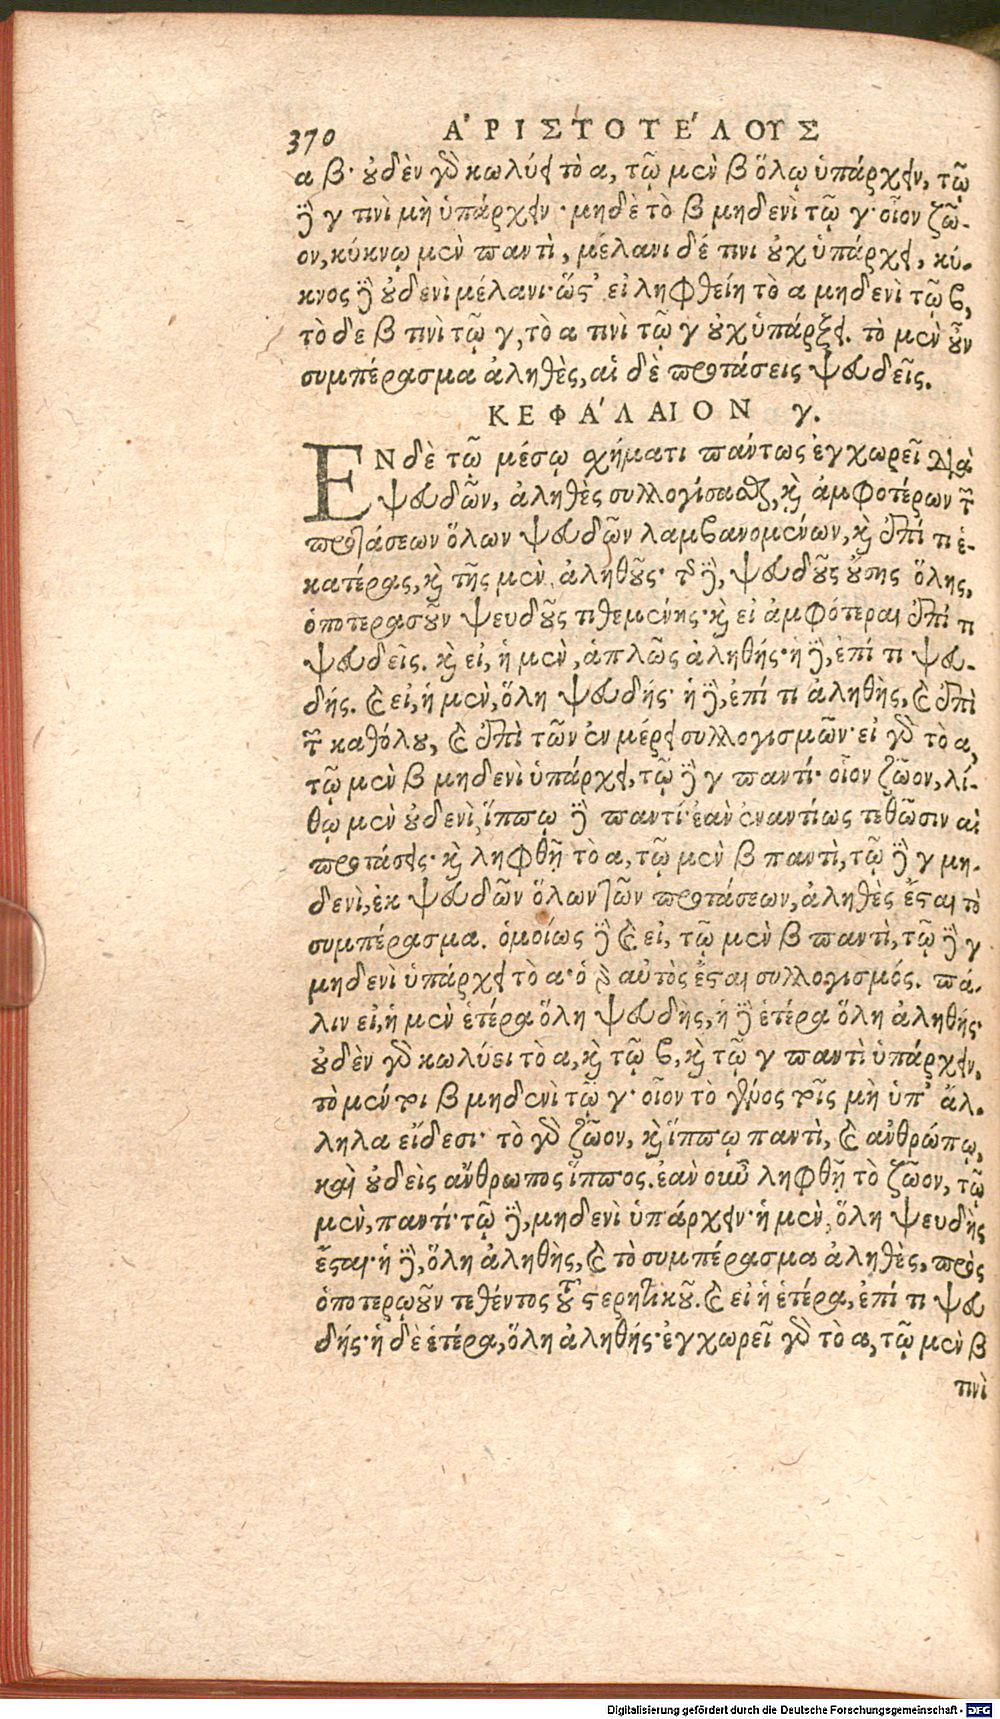 370 ἈΡΙΣΤΟΤΕ´ΛΟΥΣ
α β· οὐδὲν γὰρ κωλύει τὸ α, τῷ μὲν β ὅλῳ ὑπάρχειν, τῷ
δὲ γ τινὶ μὴ ὑπάρχειν· μηδὲ τὸ β μηδενὶ τῷ γ· οἷον ζῶ-
ον, κύκνῳ μὲν παντὶ, μέλανι δέ τινι οὐχ ὑπάρχει, κύ-
κνος δὲ οὐδενὶ μέλανι· ὥστ' εἰ ληφθείη τὸ α μηδενὶ τῷ β,
τὸ δε β τινὶ τῷ γ, τὸ α τινὶ τῷ γ οὐχ ὑπάρξει. τὸ μὲν οὖν
συμπέρασμα ἀληθὲς, αἱ δὲ προτάσεις ψευδεῖς.
ΚΕΦΑ´ΛΑΙΟΝ γ.
ΕΝ δὲ τῷ μέσῳ σχήματι πάντως ἐγχωρεῖ διὰ
ψευδῶν, ἀληθὲς συλλογίσασθαι, καὶ ἀμφοτέρων τῶν
προτάσεων ὅλων ψευδῶν λαμβανομένων, καὶ ἐπί τι ἑ-
κατέρας, καὶ τῆς μὲν ἀληθοῦς· τῆς δὲ, ψευδοῦς οὔσης ὅλης,
ὁποτερασοῦν ψευδοῦς τιθεμένης· καὶ εἰ ἀμφότεραι ἐπί τι
ψευδεῖς. καὶ εἰ, ἡ μὲν, ἁπλῶς ἀληθής· ἡ δὲ, ἐπί τι ψευ-
δής. καὶ εἰ, ἡ μὲν, ὅλη ψευδής· ἡ δὲ, ἐπί τι ἀληθὴς, καὶ ἐπὶ
τῶν καθόλου, καὶ ἐπὶ τῶν ἐν μέρει συλλογισμῶν· εἰ γὰρ τὸ α,
τῷ μὲν β μηδενὶ ὑπάρχει, τῷ δὲ γ παντί· οἷον ζῶον, λί-
θῳ μὲν οὐδενὶ, ἵππῳ δὲ παντί· ἐὰν ἐναντίως τεθῶσιν αἱ
προτάσεις· καὶ ληφθῇ τὸ α, τῷ μὲν β παντὶ, τῷ δὲ γ μη-
δενὶ, ἐκ ψευδῶν ὅλων τῶν προτάσεων, ἀληθὲς ἔσται τὸ
συμπέρασμα. ὁμοίως δὲ καὶ εἰ, τῷ μὲν β παντὶ, τῷ δὲ γ
μηδενὶ ὑπάρχει τὸ α· ὁ γὰρ αὐτὸς ἔσται συλλογισμός. πά-
λιν εἰ, ἡ μὲν ἑτέρα ὅλη ψευδὴς, ἡ δὲ ἑτέρα ὅλη ἀληθής·
οὐδὲν γὰρ κωλύει τὸ α, καὶ τῷ β, καὶ τῷ γ παντὶ ὑπάρχειν,
τὸ μέντοι β μηδενὶ τῷ γ· οἷον τὸ γένος τοῖς μὴ ὑπ' ἄλ-
ληλα εἴδεσι· τὸ γὰρ ζῶον, καὶ ἵππῳ παντὶ, καὶ ἀνθρώπῳ,
καὶ οὐδεὶς ἄνθρωπος ἵππος. ἐὰν οὖν ληφθῇ τὸ ζῶον, τῷ
μὲν, παντί· τῷ δὲ, μηδενὶ ὑπάρχειν· ἡ μὲν, ὅλη ψευδὴς
ἔσται· ἡ δὲ, ὅλη ἀληθὴς, καὶ τὸ συμπέρασμα ἀληθὲς, πρὸς
ὁποτερῳοῦν τεθέντος τοῦ στερητικοῦ. καὶ εἰ ἡ ἑτέρα, ἐπί τι ψευ
δής· ἡ δὲ ἑτέρα, ὅλη ἀληθής· ἐγχωρεῖ γὰρ τὸ α, τῷ μὲν β
τινὶ
Digitalisierung gefördert durch die Deutsche Forschungsgemeinschaft - DFG